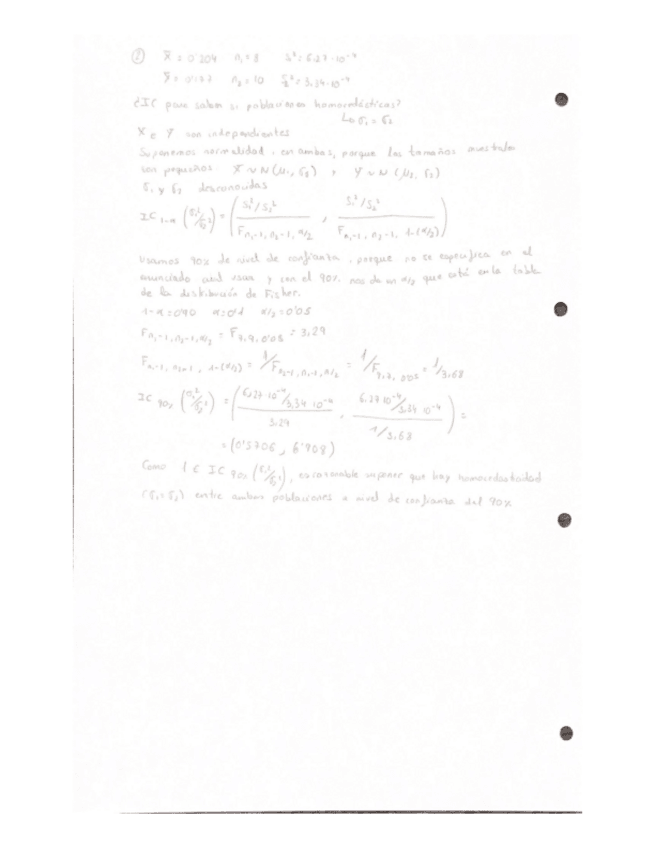 ② X̄ = 0'204 n₁ = 8 S₁² = 6.27·10⁻⁴
Ȳ = 0'177 n₂ = 10 S₂² = 3.34·10⁻⁴
¿IC para saber si poblaciones homocedásticas?
↳ σ₁ = σ₂
X e Y son independientes
Suponemos normalidad, en ambas, porque los tamaños muestrales
son pequeños. X ~ N(μ₁, σ₁) y Y ~ N(μ₂, σ₂)
σ₁ y σ₂ desconocidas
IC₁₋α (σ₁²/σ₂²) = ( (S₁²/S₂²) / F n₁-1, n₂-1, α/2 , (S₁²/S₂²) / F n₁-1, n₂-1, 1-(α/2) )
Usamos 90% de nivel de confianza, porque no se especifica en el
enunciado cual usar y con el 90% nos da un α/2 que está en la tabla
de la distribución de Fisher.
1-α = 0'90 α = 0'1 α/2 = 0'05
F n₁-1, n₂-1, α/2 = F 7, 9, 0'05 = 3,29
F n₁-1, n₂-1, 1-(α/2) = 1/F n₂-1, n₁-1, α/2 = 1/F 9, 7, 0'05 = 1/3,68
IC 90% (σ₁²/σ₂²) = ( (6,27·10⁻⁴/3,34·10⁻⁴) / 3,29 , (6,27·10⁻⁴/3,34·10⁻⁴) / (1/3,68) ) =
= (0'5706, 6'908)
Como 1 ∈ IC 90% (σ₁²/σ₂²), es razonable suponer que hay homocedasticidad
(σ₁ = σ₂) entre ambas poblaciones a nivel de confianza del 90%